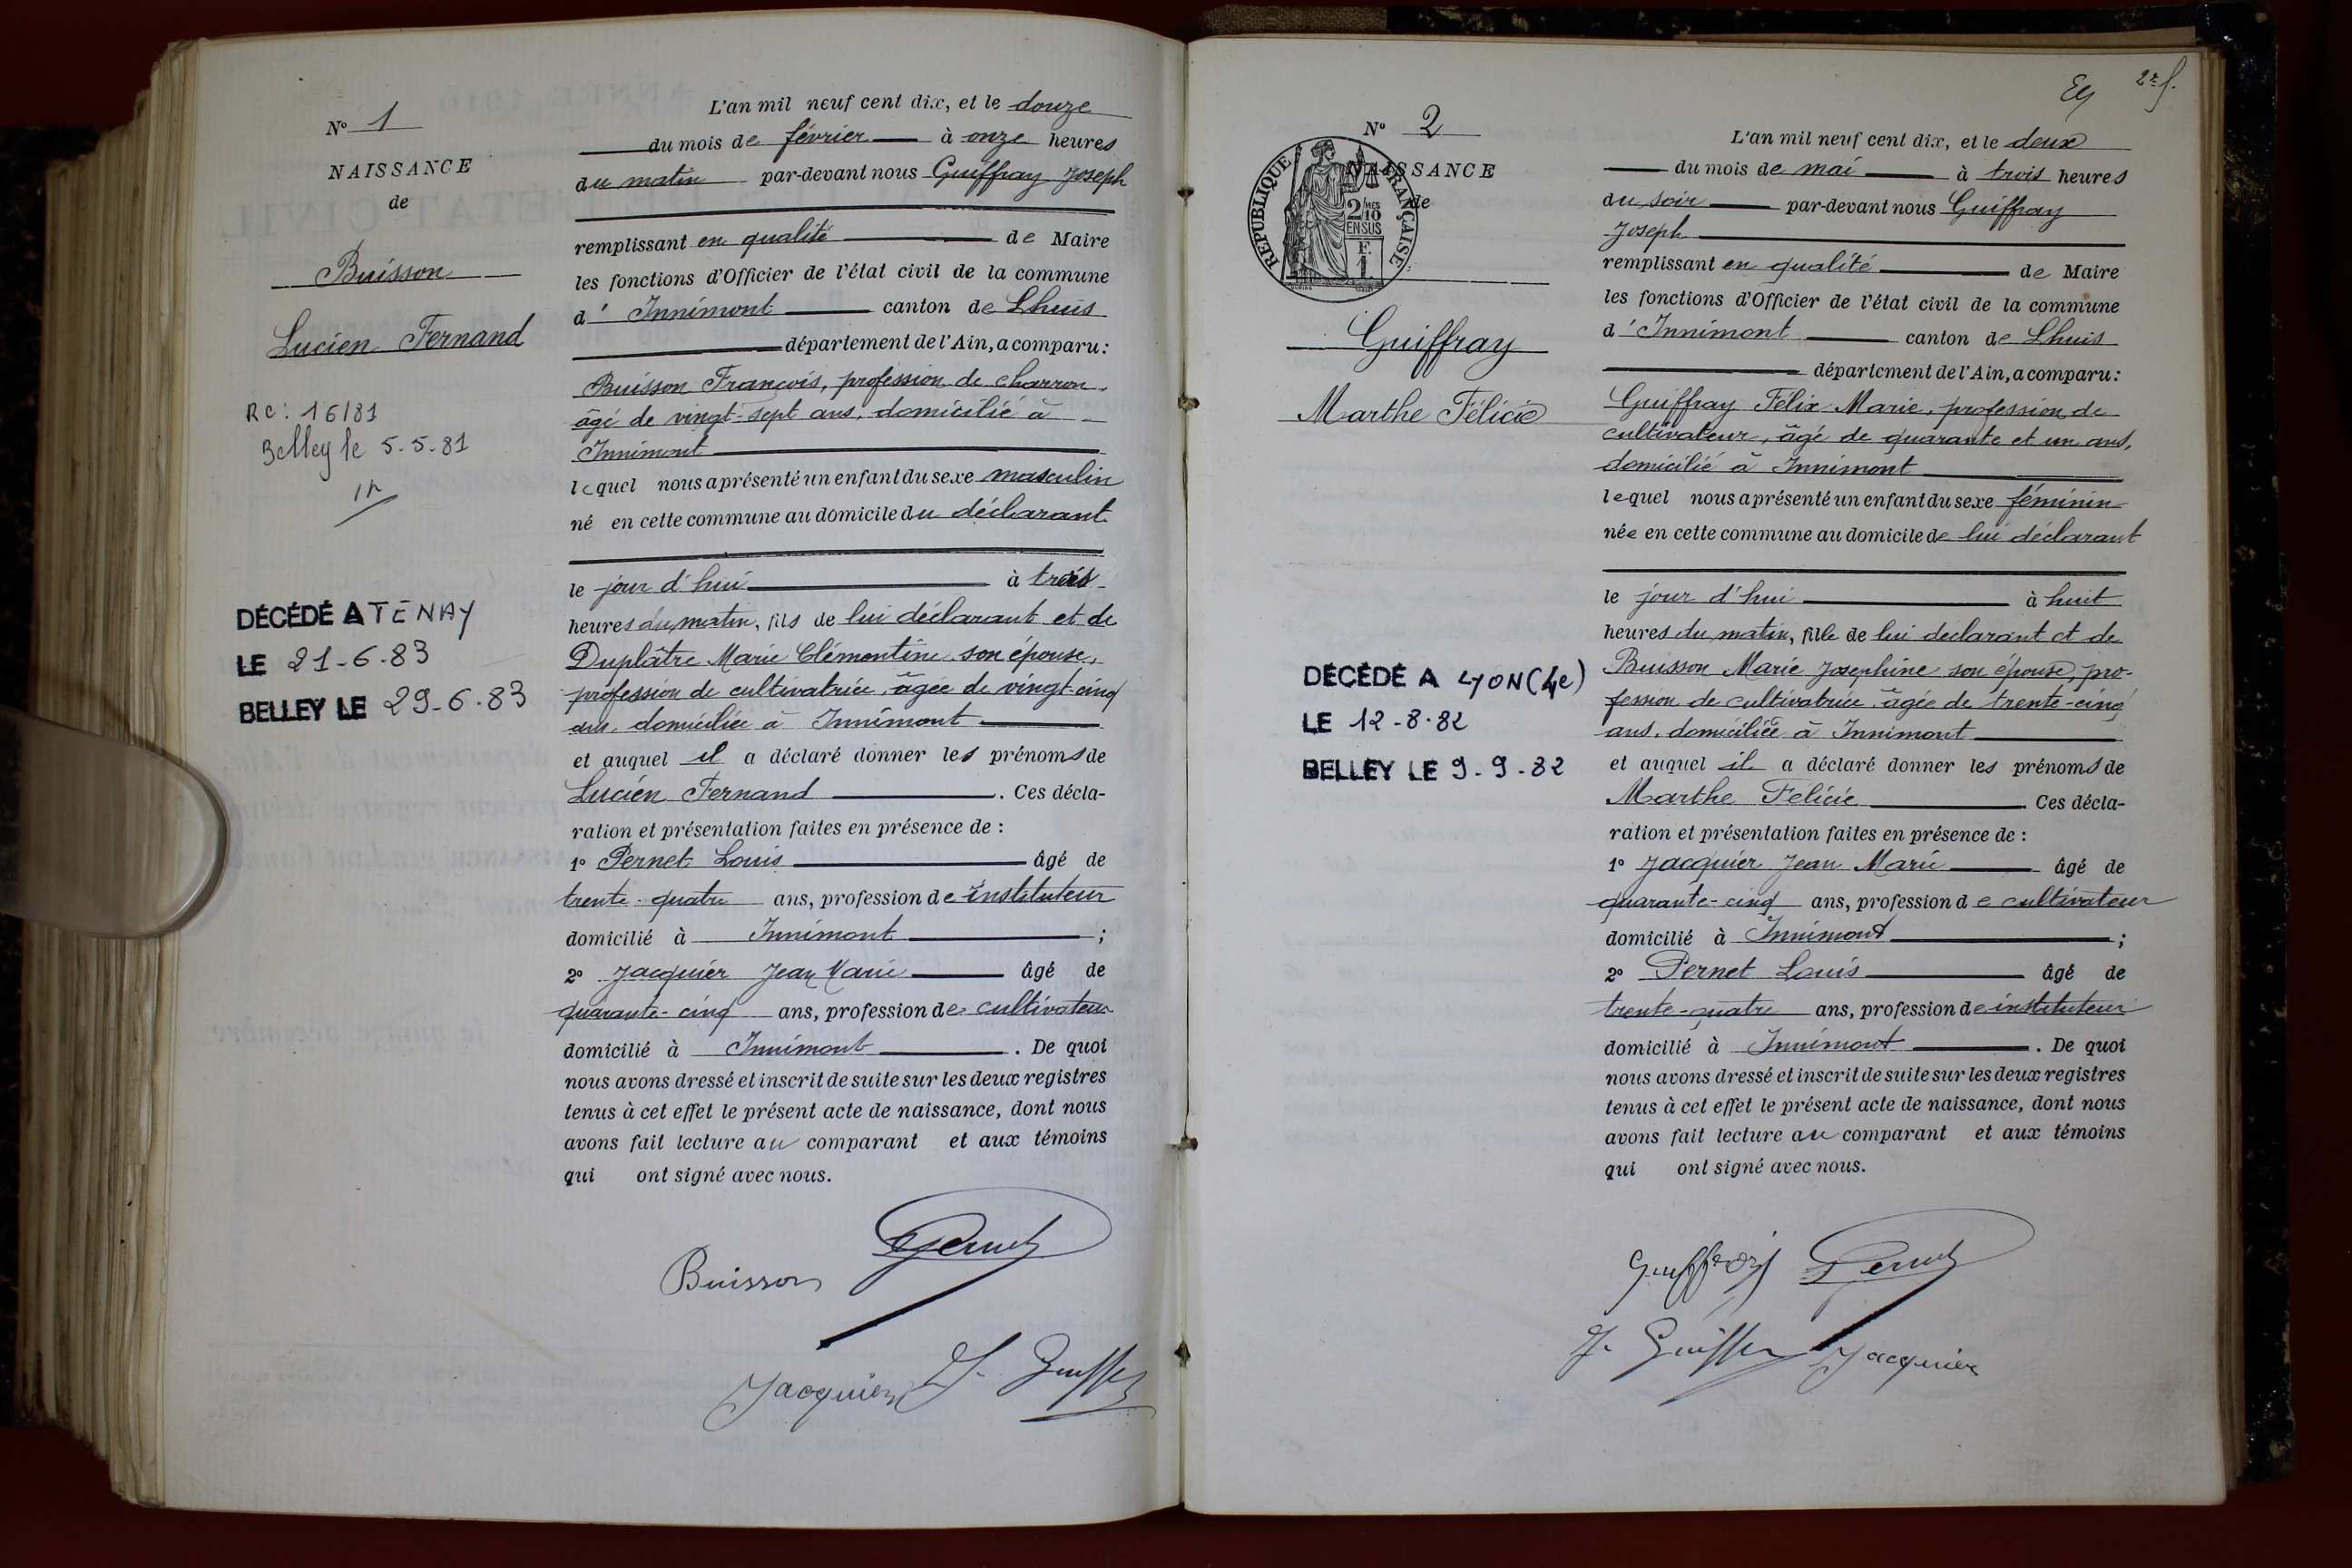 N° 1
NAISSANCE
de
Buisson
Lucien Fernand
RC: 16/81
Belley le 5.5.81
DÉCÉDÉ A TENAY
LE 21-6-83
BELLEY LE 29-6-83
L'an mil neuf cent dix, et le douze
du mois de février à onze heures
du matin par-devant nous Guiffray Joseph
remplissant en qualité de Maire
les fonctions d'Officier de l'état civil de la commune
d' Innimont canton de Lhuis
département de l'Ain, a comparu:
Buisson François, profession de charron,
âgé de vingt-sept ans, domicilié à
Innimont
lequel nous a présenté un enfant du sexe masculin
né en cette commune au domicile du déclarant
le jour d'hui à trois
heures du matin, fils de lui déclarant et de
Duplâtre Marie Clémentine son épouse,
profession de cultivatrice, âgée de vingt-cinq
ans, domiciliée à Innimont
et auquel il a déclaré donner les prénoms de
Lucien Fernand . Ces décla-
ration et présentation faites en présence de :
1° Pernet Louis âgé de
trente-quatre ans, profession de instituteur
domicilié à Innimont ;
2° Jacquier Jean Marie âgé de
quarante-cinq ans, profession de cultivateur
domicilié à Innimont . De quoi
nous avons dressé et inscrit de suite sur les deux registres
tenus à cet effet le présent acte de naissance, dont nous
avons fait lecture au comparant et aux témoins
qui ont signé avec nous.
Buisson Pernet
Jacquier J. Guiffray
2e f.
N° 2
NAISSANCE
de
RÉPUBLIQUE FRANÇAISE
2/10 MES
EN SUS
F.
1.
Guiffray
Marthe Félicie
DÉCÉDÉ A LYON (4e)
LE 12-8-82
BELLEY LE 9-9-82
L'an mil neuf cent dix, et le deux
du mois de mai à trois heures
du soir par-devant nous Guiffray
Joseph
remplissant en qualité de Maire
les fonctions d'Officier de l'état civil de la commune
d' Innimont canton de Lhuis
département de l'Ain, a comparu:
Guiffray Félix Marie, profession de
cultivateur, âgé de quarante et un ans,
domicilié à Innimont
lequel nous a présenté un enfant du sexe féminin
née en cette commune au domicile de lui déclarant
le jour d'hui à huit
heures du matin, fille de lui declarant et de
Buisson Marie Josephine son épouse, pro-
fession de cultivatrice, âgée de trente-cinq
ans, domiciliée à Innimont
et auquel il a déclaré donner les prénoms de
Marthe Felicie . Ces décla-
ration et présentation faites en présence de :
1° Jacquier Jean Marie âgé de
quarante-cinq ans, profession de cultivateur
domicilié à Innimont ;
2° Pernet Louis âgé de
trente-quatre ans, profession de instituteur
domicilié à Innimont . De quoi
nous avons dressé et inscrit de suite sur les deux registres
tenus à cet effet le présent acte de naissance, dont nous
avons fait lecture au comparant et aux témoins
qui ont signé avec nous.
Guiffray Pernet
J. Guiffray Jacquier